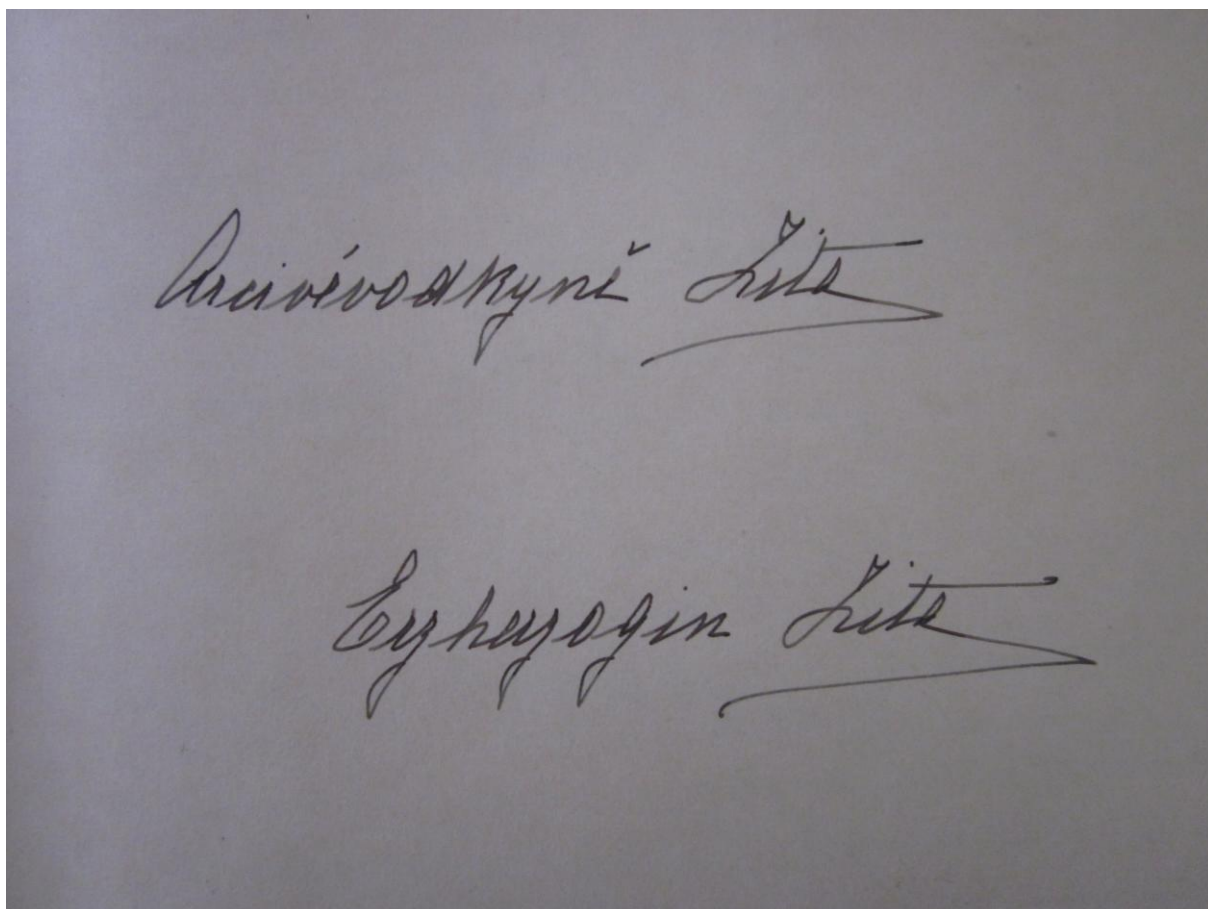 Arcivévodkyně Zita
Erzherzogin Zita